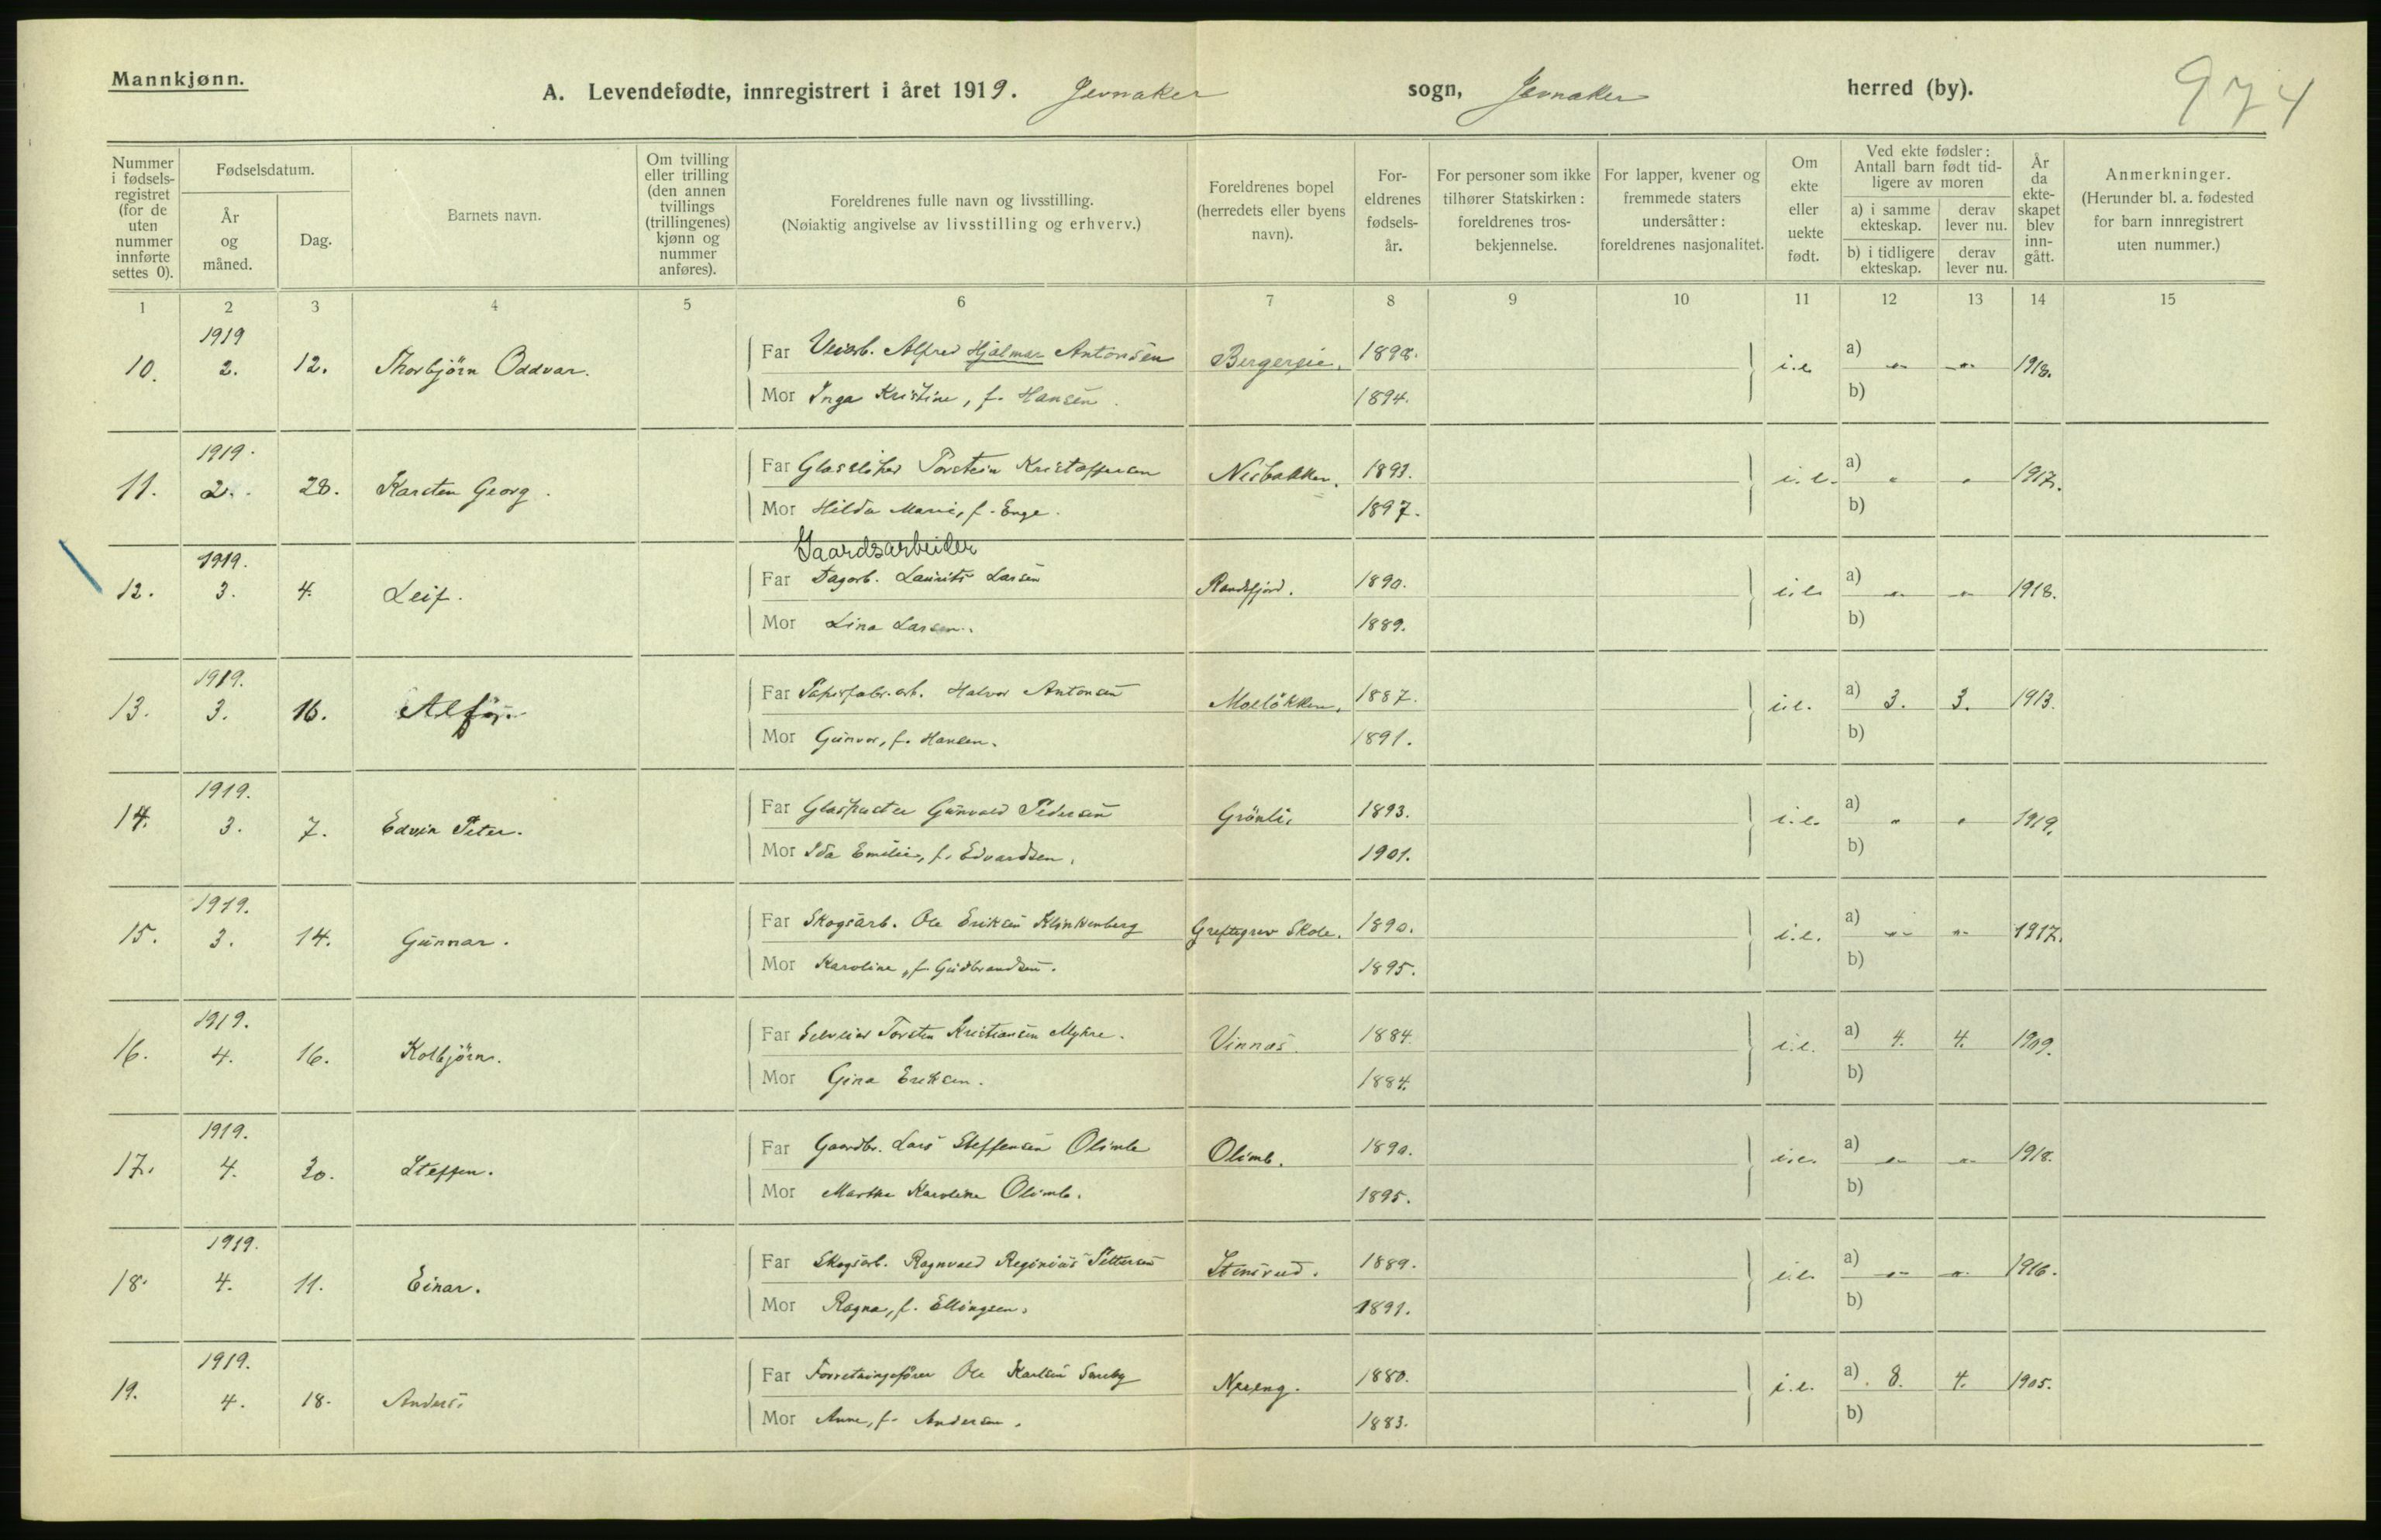 Mannkjønn.
A. Levendefødte, innregistrert i året 1919. Jevnaker sogn, Jevnaker herred (by). 974
Nummer i fødselsregistret (for de uten nummer innførte settes 0).
Fødselsdatum.
År og måned.
Dag.
Barnets navn.
Om tvilling eller trilling (den annen tvillings (trillingenes) kjønn og nummer anføres).
Foreldrenes fulle navn og livsstilling.
(Nøiaktig angivelse av livsstilling og erhverv.)
Foreldrenes bopel (herredets eller byens navn).
Foreldrenes fødselsår.
For personer som ikke tilhører Statskirken: foreldrenes trosbekjennelse.
For lapper, kvener og fremmede staters undersåtter: foreldrenes nasjonalitet.
Om ekte eller uekte født.
Ved ekte fødsler: Antall barn født tidligere av moren
a) i samme ekteskap.
derav lever nu.
b) i tidligere ekteskap.
derav lever nu.
År da ekteskapet blev inngått.
Anmerkninger.
(Herunder bl. a. fødested for barn innregistrert uten nummer.)
1 2 3 4 5 6 7 8 9 10 11 12 13 14 15
10. 1919 2. 12. Thorbjörn Oddvar. Far Veiarb. Alfred Hjalmar Antonsen Bergereie. 1898. i.e a) " " 1918.
Mor Inga Kristine, f. Hansen. 1894. b)
11. 1919. 2. 28. Karsten Georg. Far Glassliper Torstein Kristoffersen Nesbakken. 1893. i.e. a) " " 1917.
Mor Hilda Marie, f. Enge. 1897. b)
Gaardsarbeider
12. 1919. 3. 4. Leif. Far Dagarb. Laurits Larsen Randsfjord. 1890. i.e. a) " " 1918.
Mor Lina Larsen. 1889. b)
13. 1919. 3. 16. Far Papirfabr.arb. Halvor Antonsen Moelökken. 1887. i.e. a) 3. 3. 1913.
Mor Gunvor, f. Hansen. 1891. b)
14. 1919. 3. 7. Edvin Peter. Far Glaspuster Gunvald Pedersen Grönli. 1893. i.e. a) " " 1919.
Mor Ida Emilie, f. Edvardsen. 1901. b)
15. 1919. 3. 14. Gunnar. Far Skogsarb. Ole Eriksen Klinkenberg Greftegrev Skole. 1890. i.e. a) " " 1917.
Mor Karoline, f. Gudbrandsen. 1895. b)
16. 1919. 4. 16. Kolbjörn. Far Selveier Torsten Kristiansen Myhre. Vinnas. 1884. i.e. a) 4. 4. 1909.
Mor Gina Eriksen. 1884. b)
17. 1919. 4. 30. Steffen. Far Gaardbr. Lars Steffensen Olimb Olimb. 1890. i.e. a) " " 1918.
Mor Marthe Karoline Olimb. 1895. b)
18. 1919. 4. 11. Einar. Far Skogsarb. Ragnvald Reginius Pettersen Stensrud. 1889. i.e. a) " " 1916.
Mor Ragna, f. Ellingsen. 1891. b)
19. 1919. 4. 18. Anders. Far Forretningsfører Ole Karlsen 1880. i.e. a) 8. 4. 1905.
Mor Anne, f. Andersen. 1883. b)